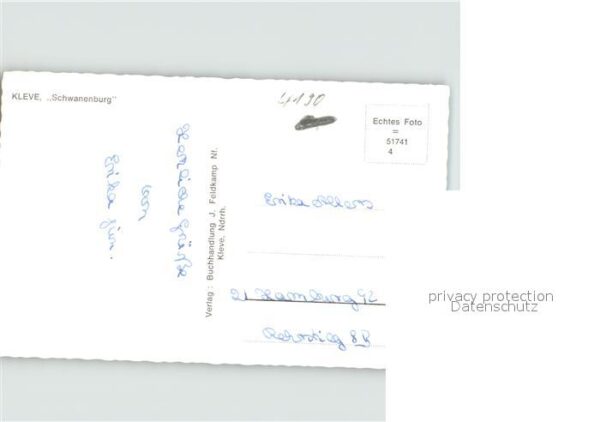 KLEVE, „Schwanenburg"
4190
Echtes Foto
=
51741
4
Herzliche Grüße
von
Erika jun.
Verlag: Buchhandlung J. Feldkamp Nf.
Kleve, Ndrrh.
Erika Allers
21 Hamburg 92
8B
privacy protection
Datenschutz